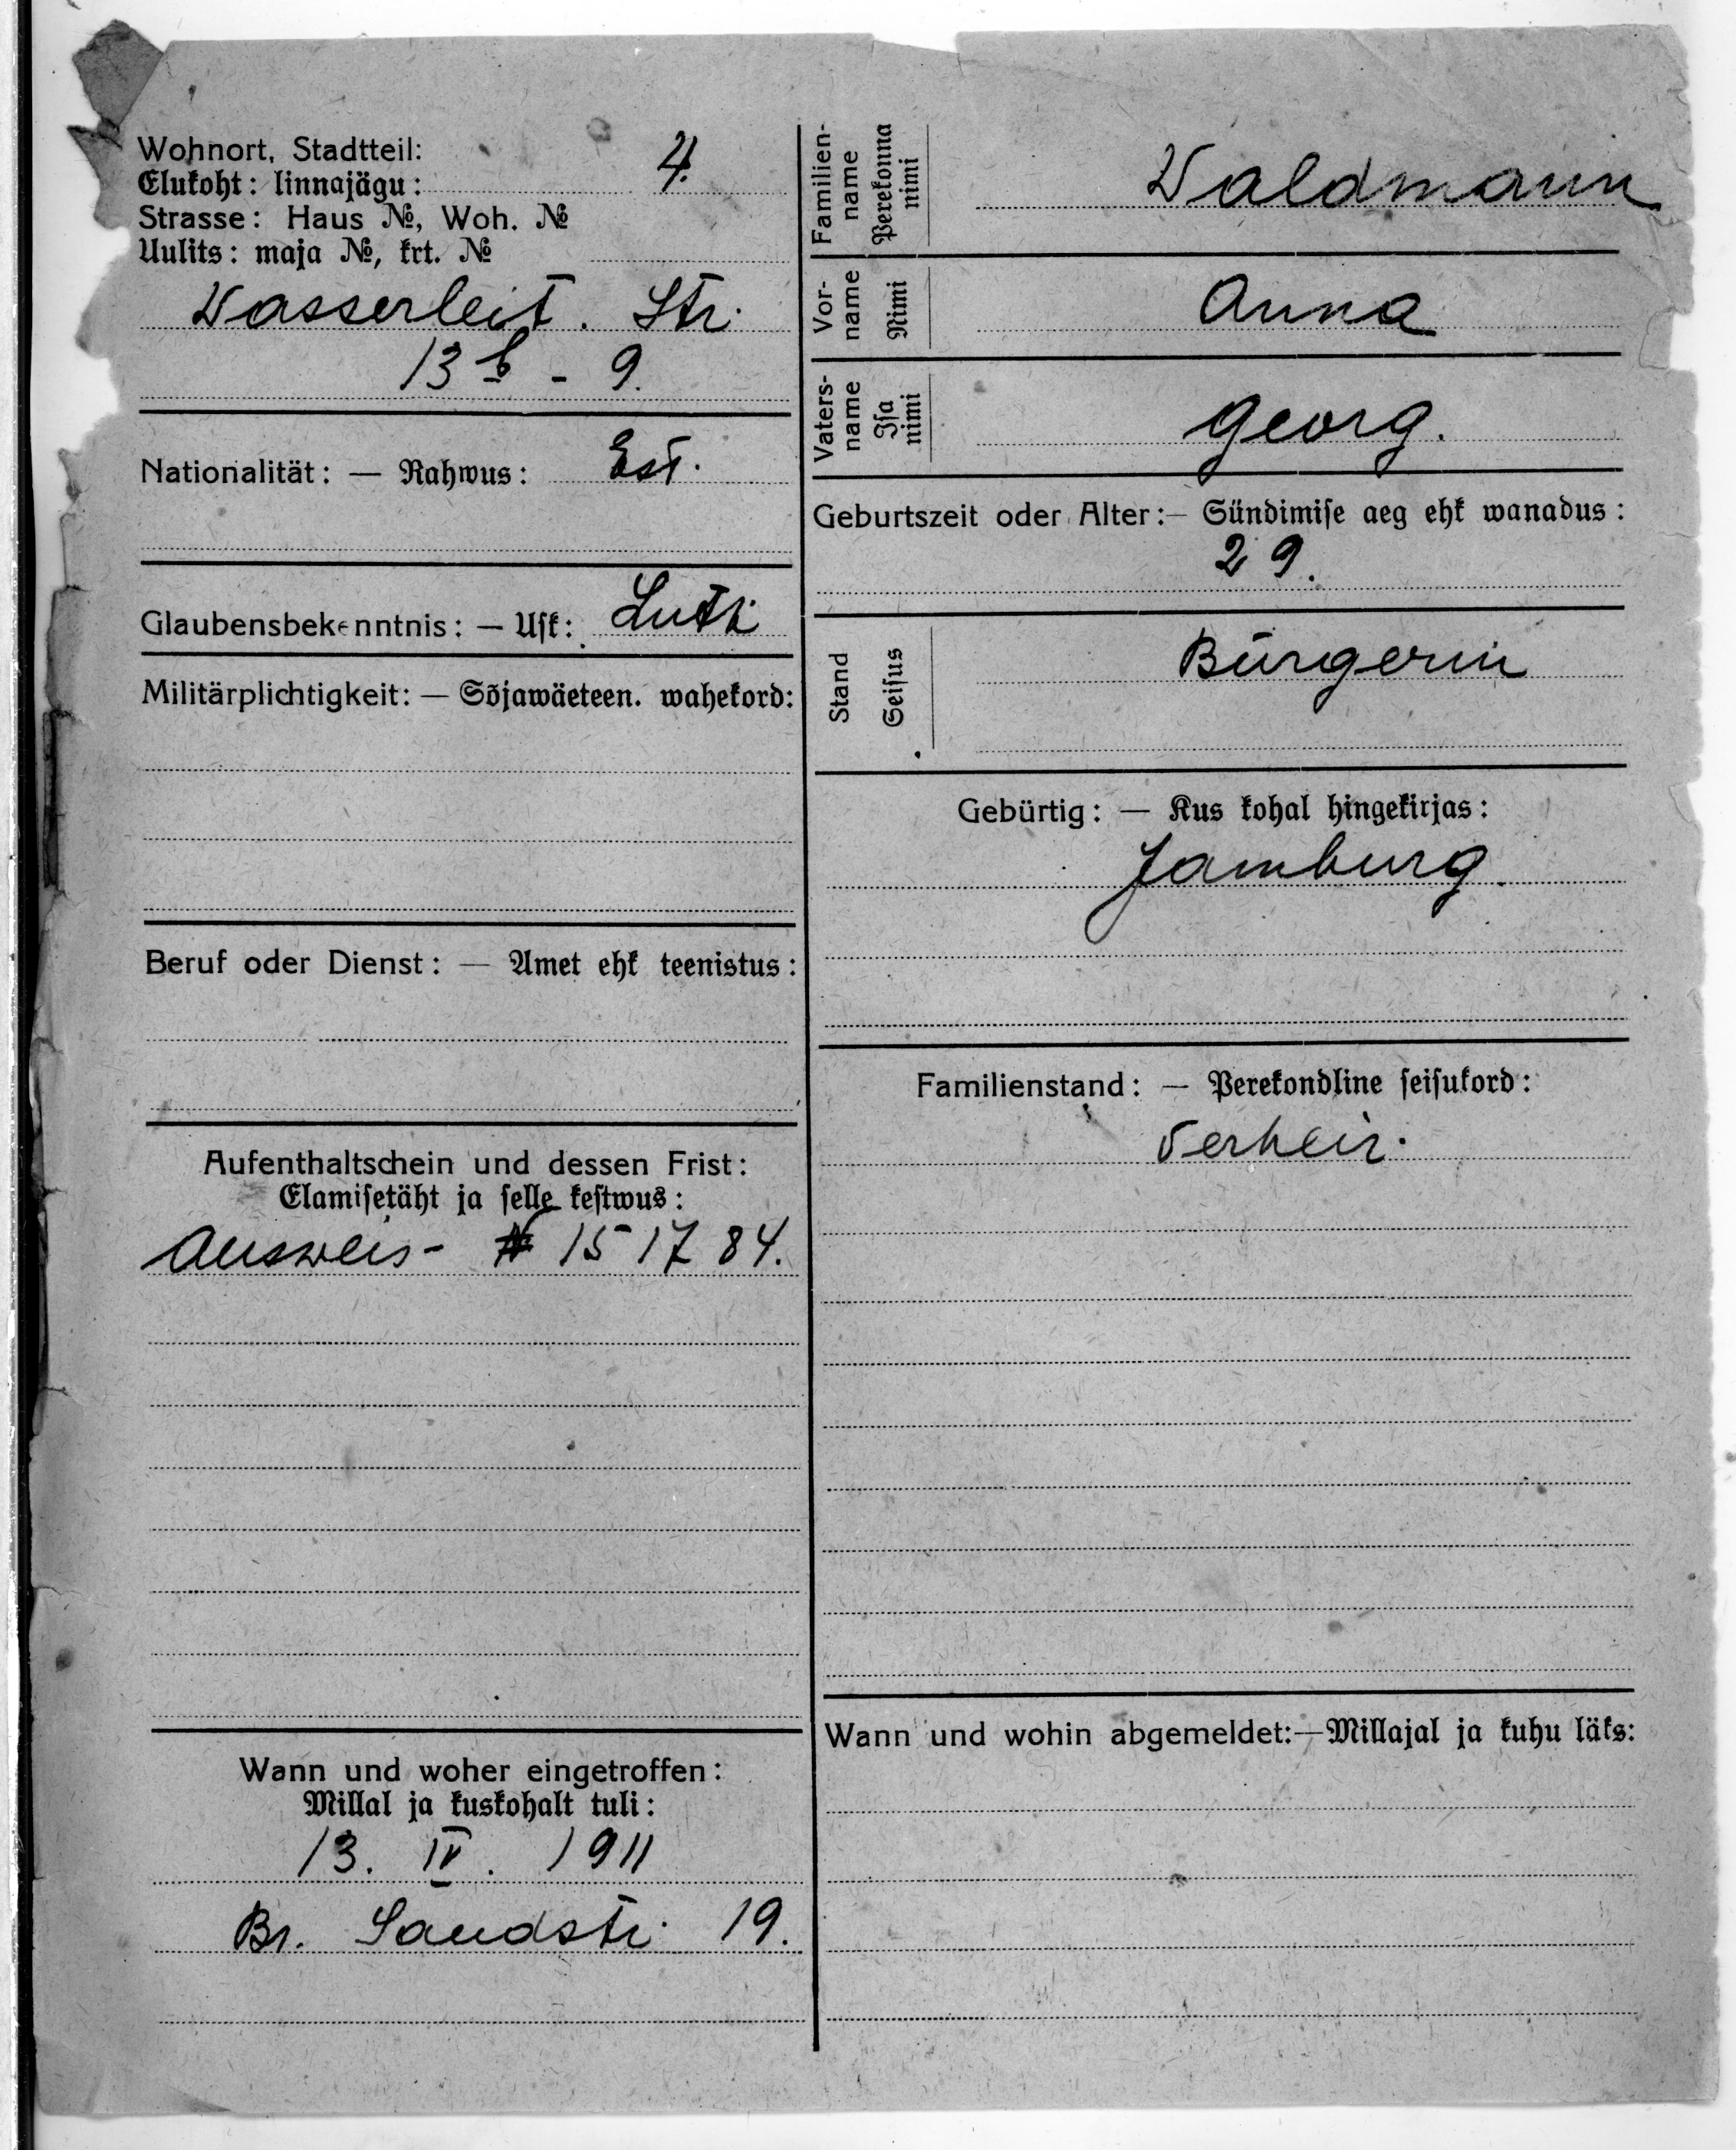 Wohnort, Stadtteil:
Elukoht: linnajägu: 4.
Strasse: Haus №, Woh. №
Uulits: maja №, krt. №
Wasserleit. Str.
13 b - 9.
Nationalität: — Rahwus: Est.
Glaubensbekenntnis: — Usk: Luth.
Militärplichtigkeit: — Sõjawäeteen. wahekord:
Beruf oder Dienst: — Amet ehk teenistus:
Aufenthaltschein und dessen Frist:
Elamisetäht ja selle kestwus:
Ausweis - № 151784.
Wann und woher eingetroffen:
Millal ja kuskohalt tuli:
13. IV. 1911
Br. Sandstr. 19.
Familien-
name
Perekonna
nimi
Waldmann
Vor-
name
Nimi
Anna
Vaters-
name
Isa
nimi
Georg.
Geburtszeit oder Alter:— Sündimise aeg ehk wanadus:
29.
Stand
Seisus
Bürgerin
Gebürtig: — Kus kohal hingekirjas:
Jamburg.
Familienstand: — Perekondline seisukord:
Verheir.
Wann und wohin abgemeldet:—Millajal ja kuhu läks: